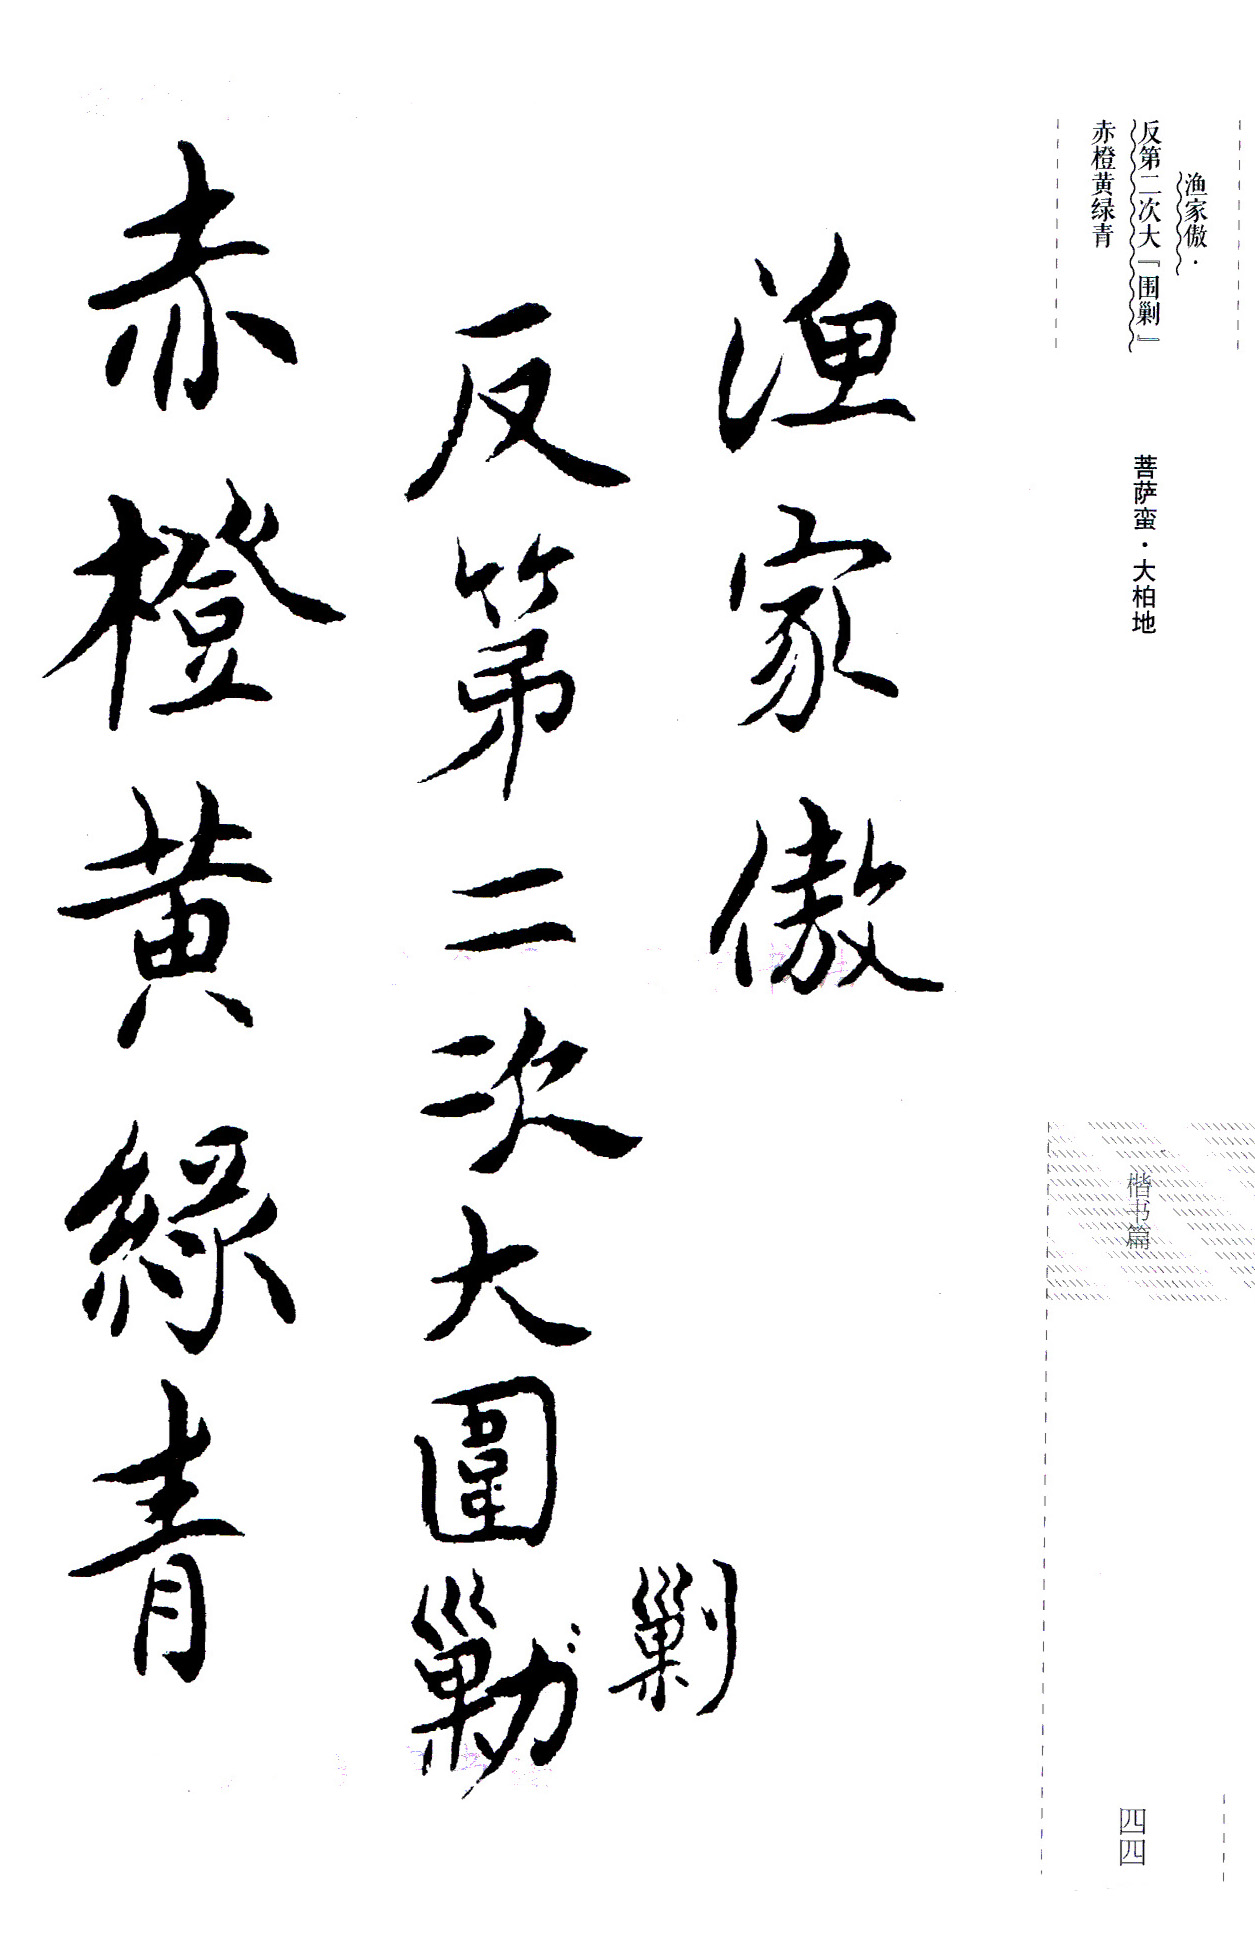 渔家傲·
反第二次大『围剿』
赤橙黄绿青
菩萨蛮·大柏地
楷书篇
四四
渔家傲
反第二次大圍勦
剿
赤橙黄綠青